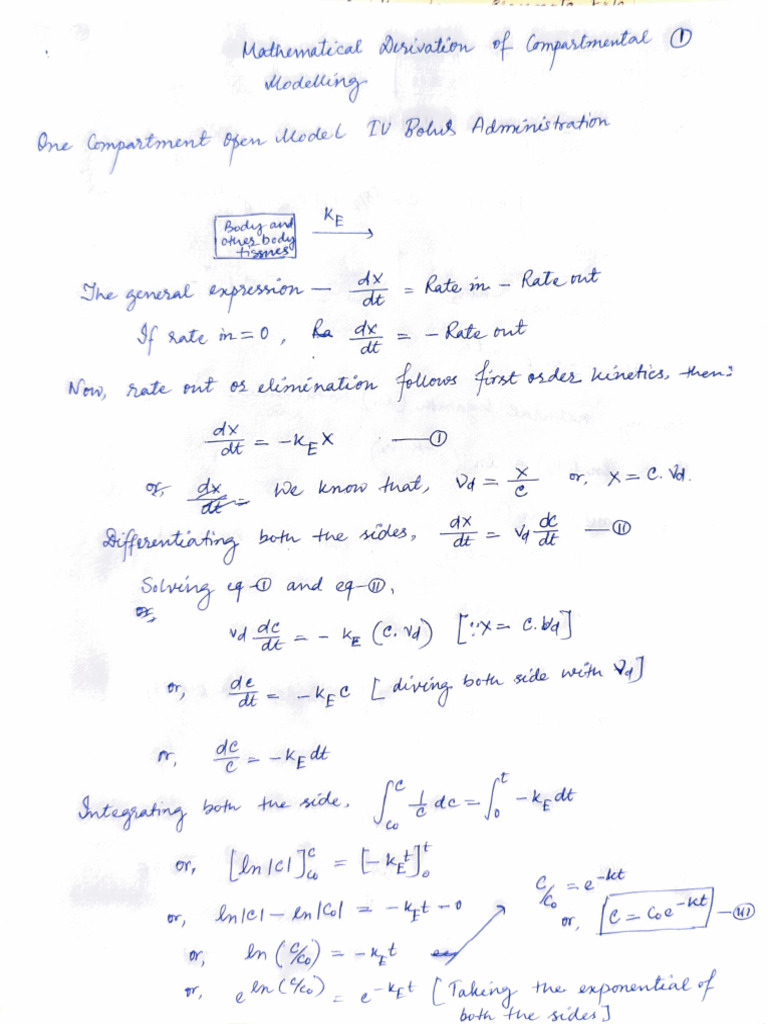 Mathematical Derivation of Compartmental ①
Modelling
One Compartment Open Model IV Bolus Administration
Body and
other body
tissues
K_E
The general expression — dx/dt = Rate in - Rate out
If rate in = 0, dx/dt = - Rate out
Now, rate out or elimination follows first order kinetics, then:
dx/dt = -K_E X —①
or, dx/dt = We know that, Vd = X/C or, X = C. Vd.
Differentiating both the sides, dx/dt = Vd dc/dt —⑪
Solving eq-① and eq-⑪,
or,
Vd dc/dt = - K_E (C. Vd) [∵X = C. Vd]
or, dc/dt = -K_E C [diving both side with Vd]
or, dc/C = -K_E dt
Integrating both the side, ∫_{C0}^{C} 1/C dc = ∫_0^t -K_E dt
or, [ln|C|]_{C0}^{C} = [-K_E t]_0^t
or, ln|C| - ln|C0| = -K_E t - 0
or, ln (C/C0) = -K_E t
C/C0 = e^{-kt}
or, C = C0 e^{-kt} —(III)
or, e^{ln (C/C0)} = e^{-K_E t} [Taking the exponential of
both the sides]